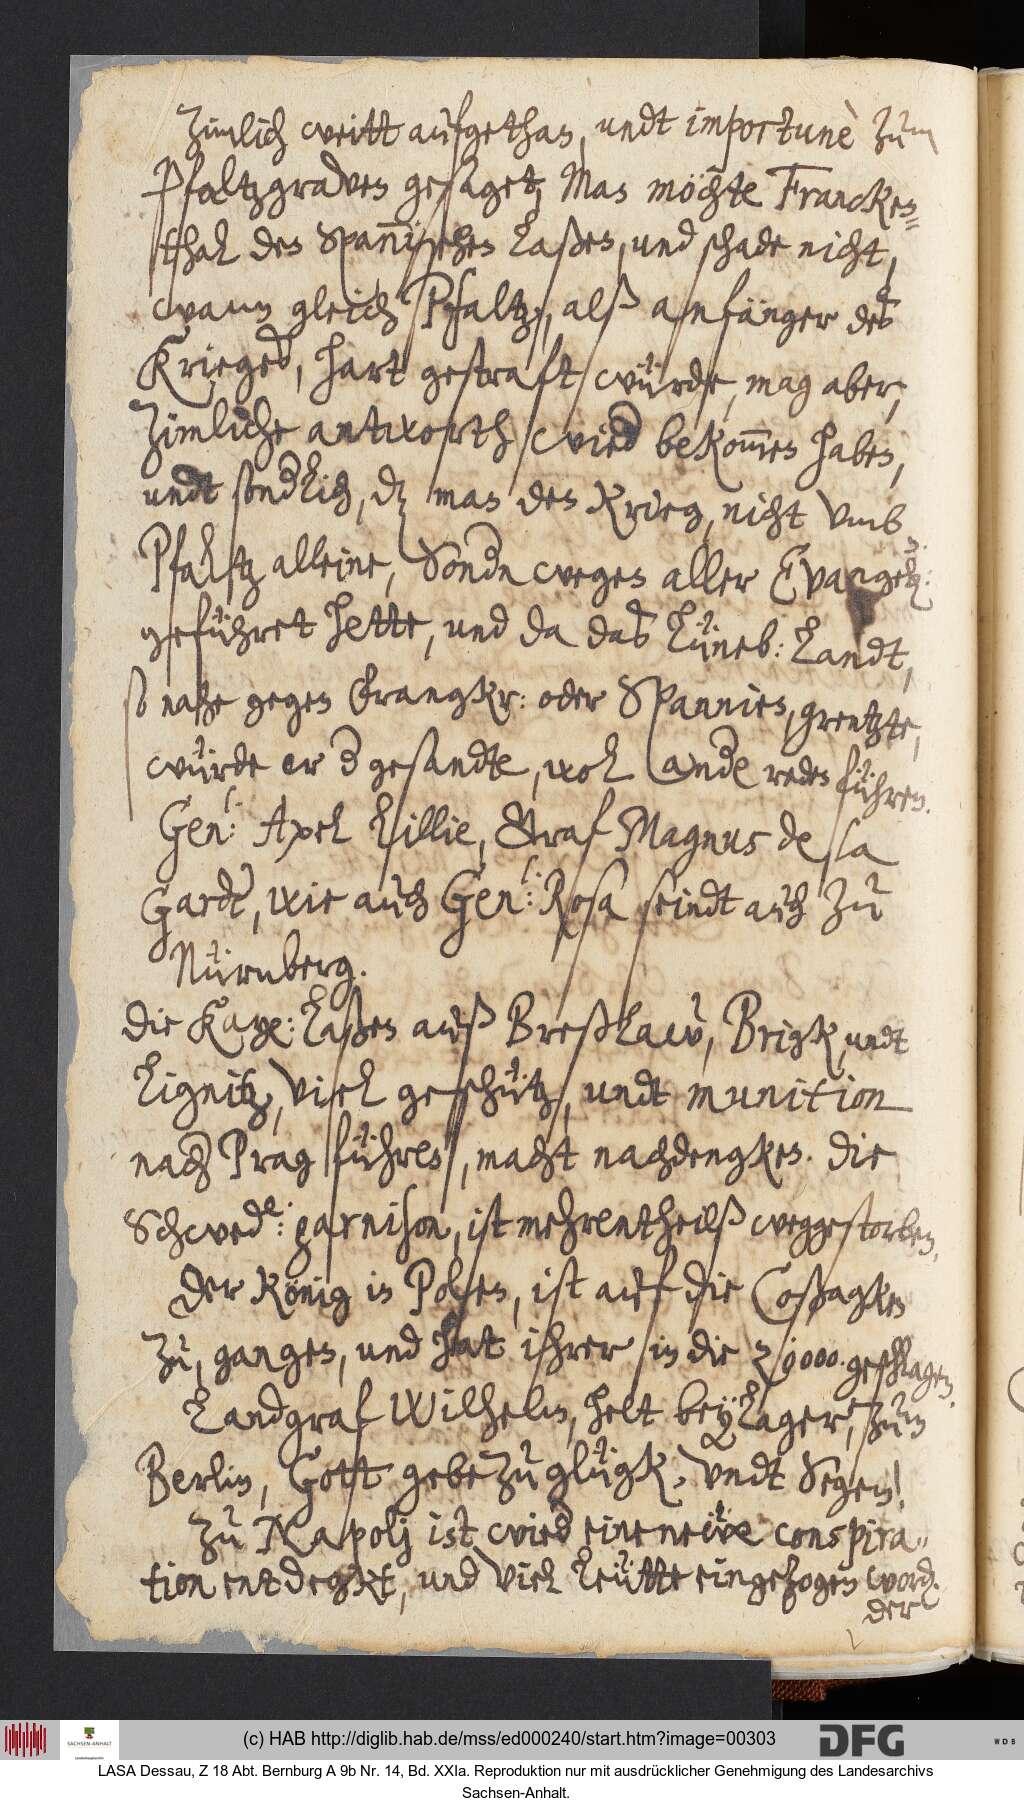 Zimlich weitt aufgethan, undt importunè zum
Pfaltzgraven gesaget, Man möchte Francken=
thal den Spannischen laßen, und schade nicht,
wann gleich Pfaltz, alß anfänger des
Krieges, hart gestraft würde, mag aber,
Zimliche antworth wied bekom̄en haben,
undt sond'lich, dz man den Krieg, nicht vmb
Pfaltz alleine, Sond'n wegen aller Evangel:
geführet hette, und da das Lüneb: Landt,
so nahe gegen Frangkr: oder Spannien, grentzte,
würde er d' gesandte, wol And'e reden führen.
Gen.l: Axel Lillie, Graf Magnus de la
Gardi, wie auch Gen.l: Rosa seindt auch zu
Nürnberg.
Die Kay.e: laßen auß Breßlaw, Brigk, undt
Lignitz, viel geschütz, undt munition
nach Prag führen, macht nachdengken. Die
Schwed.e: garnison, ist mehrentheilß weggestorben,
Der König in Polen, ist auf die Coßagken
zu, gangen, und hat ihrer in die 20000. geschlagen.
Landgraf Wilhelm, helt beylager, zum
Berlin, Gott gebe zu glügk, undt Segen!
Zu Napolj ist wied' eine neẅe conspira=
tion entdegkt, und viel leütte eingezogen word.
der
(c) HAB http://diglib.hab.de/mss/ed000240/start.htm?image=00303
SACHSEN-ANHALT
DFG
WDB
LASA Dessau, Z 18 Abt. Bernburg A 9b Nr. 14, Bd. XXIa. Reproduktion nur mit ausdrücklicher Genehmigung des Landesarchivs
Sachsen-Anhalt.